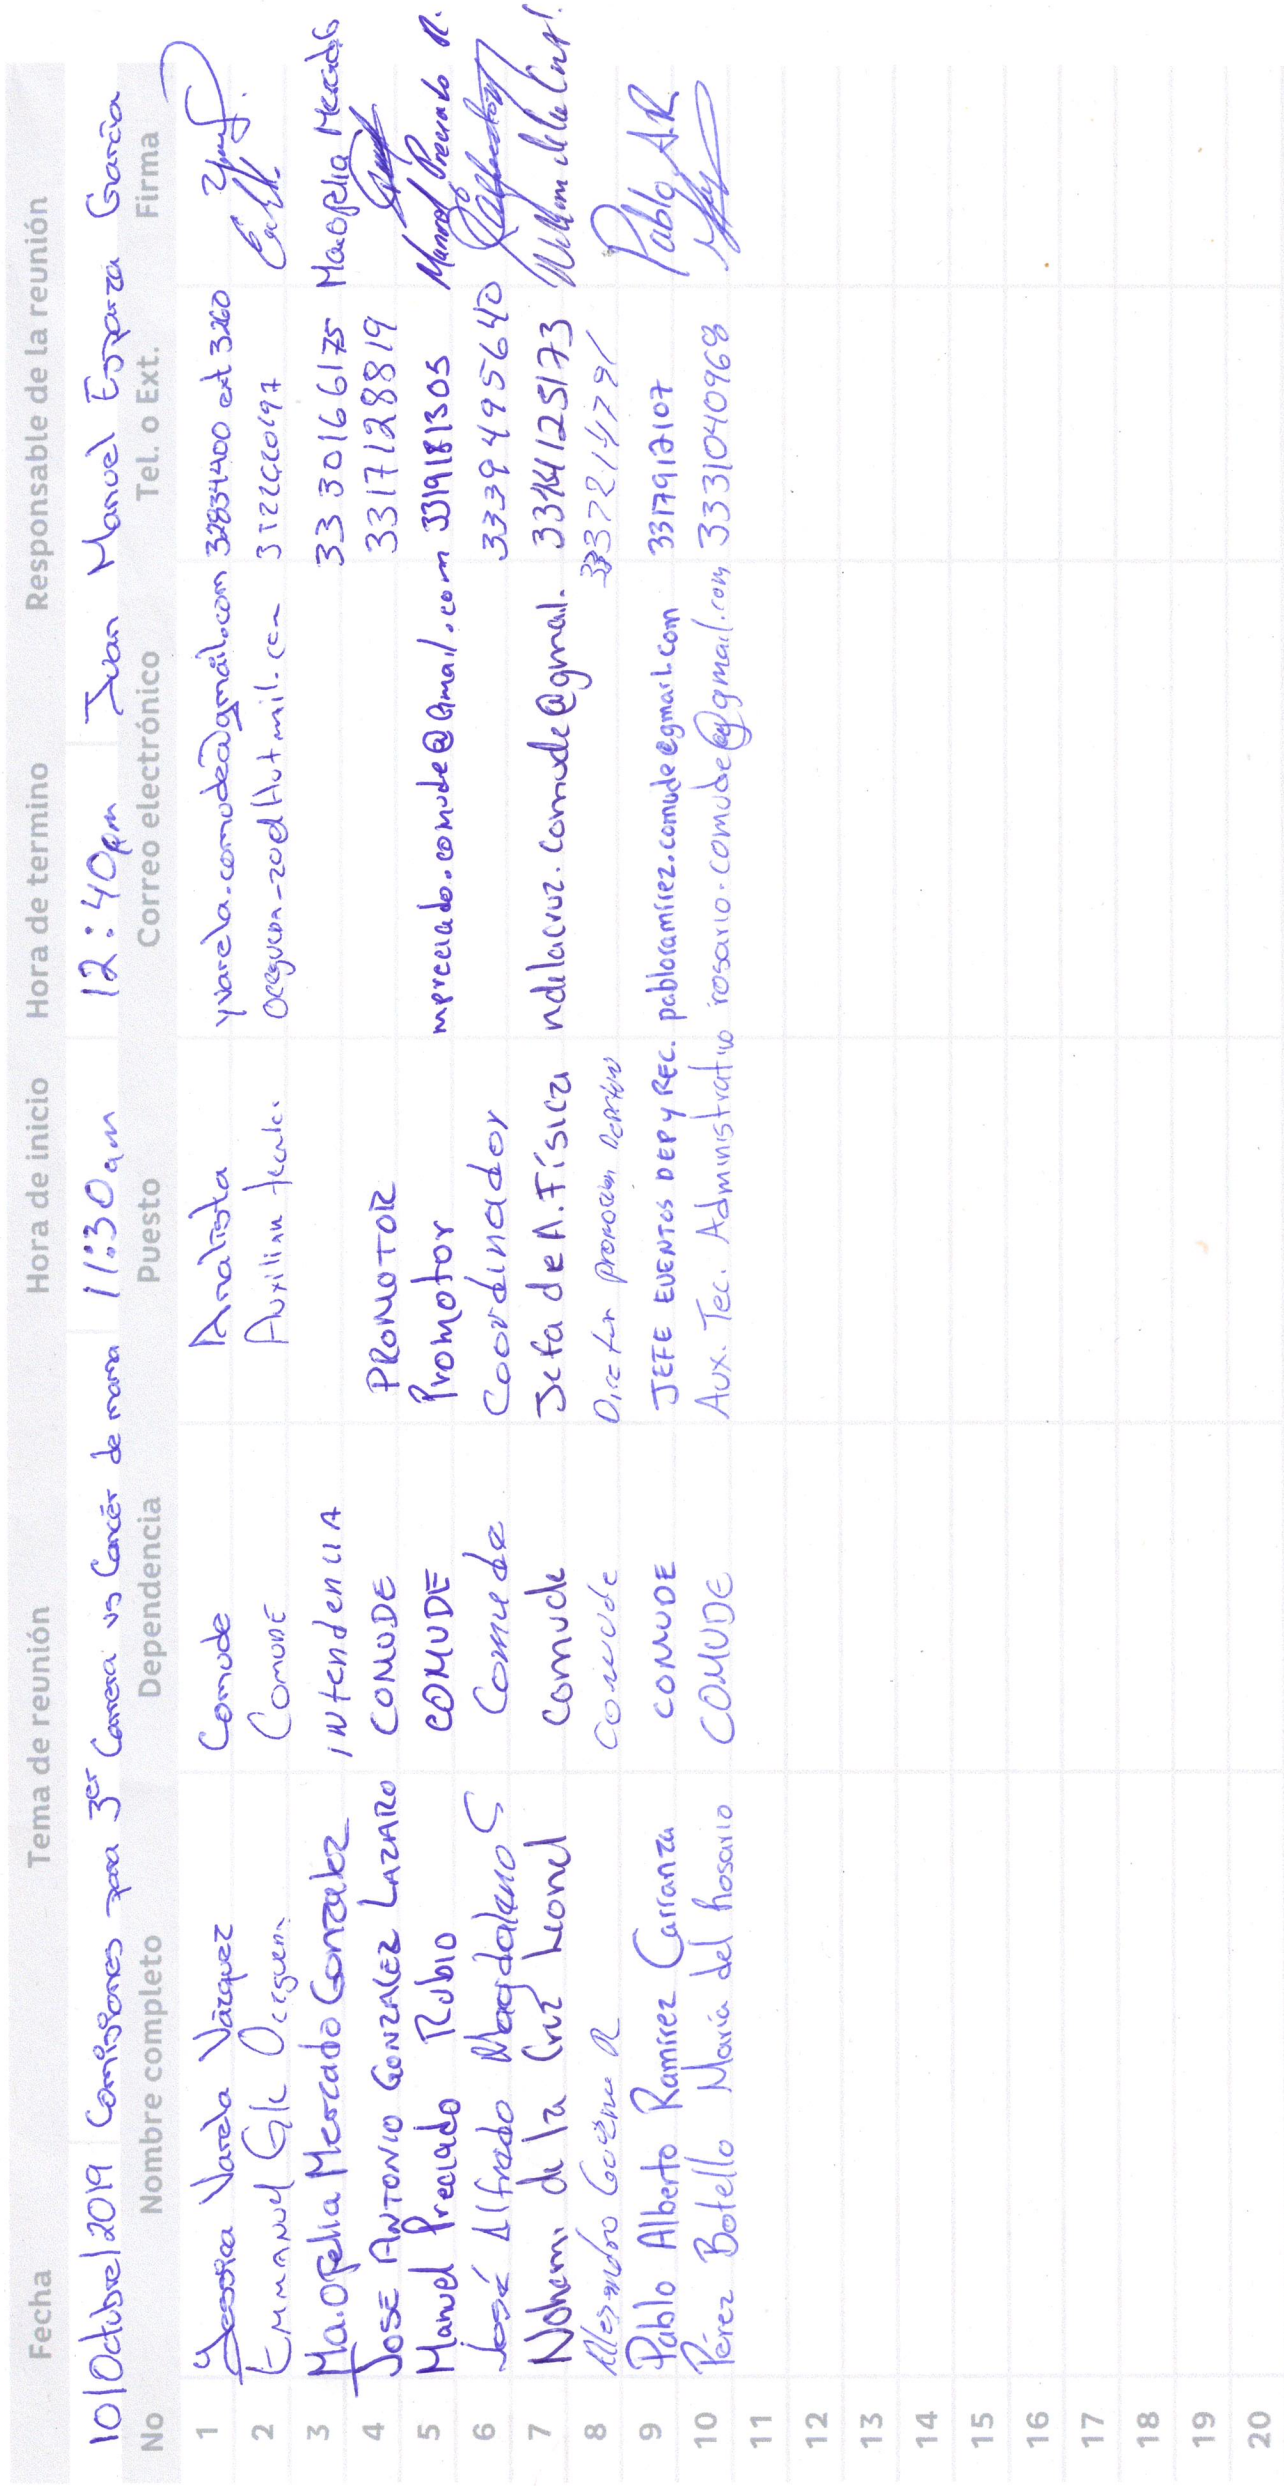 Fecha Tema de reunión Hora de inicio Hora de termino Responsable de la reunión
10/Octubre/2019 Comisiones para 3er Carrera vs Cancér de mama 11:30am 12:40pm Juan Manuel Esparza García
No Nombre completo Dependencia Puesto Correo electrónico Tel. o Ext. Firma
1 Yessica Varela Vázquez Comude Analista yvarela.comude@gmail.com 32834400 ext 3260
2 Emmanuel Gil Oceguera Comude Auxiliar
3 Ma.Ofelia Mercado Gonzalez intendencia 3330166175 Ma.Ofelia Mercado
4 JOSE ANTONIO GONZALEZ LAZARO COMUDE PROMOTOR 3317128819
5 Manuel Preciado Rubio COMUDE Promotor mpreciado.comude@Gmail.com 3319181305 Manuel Preciado R.
6 José Alfredo Magdaleno C Comude Coordinador 3339495640
7 Nohemi de la Cruz Leonel comude Jefa de A. Física ndelacruz.comude@gmail. 3314125173
8 Comude Director promocion
9 Pablo Alberto Ramírez Carranza COMUDE JEFE EVENTOS DEP Y REC. pabloramirez.comude@gmail.com 3317912107 Pablo A.R
10 Pérez Botello María del Rosario COMUDE Aux. Tec. Administrativo rosario.comude@gmail.com 3331040968
11
12
13
14
15
16
17
18
19
20